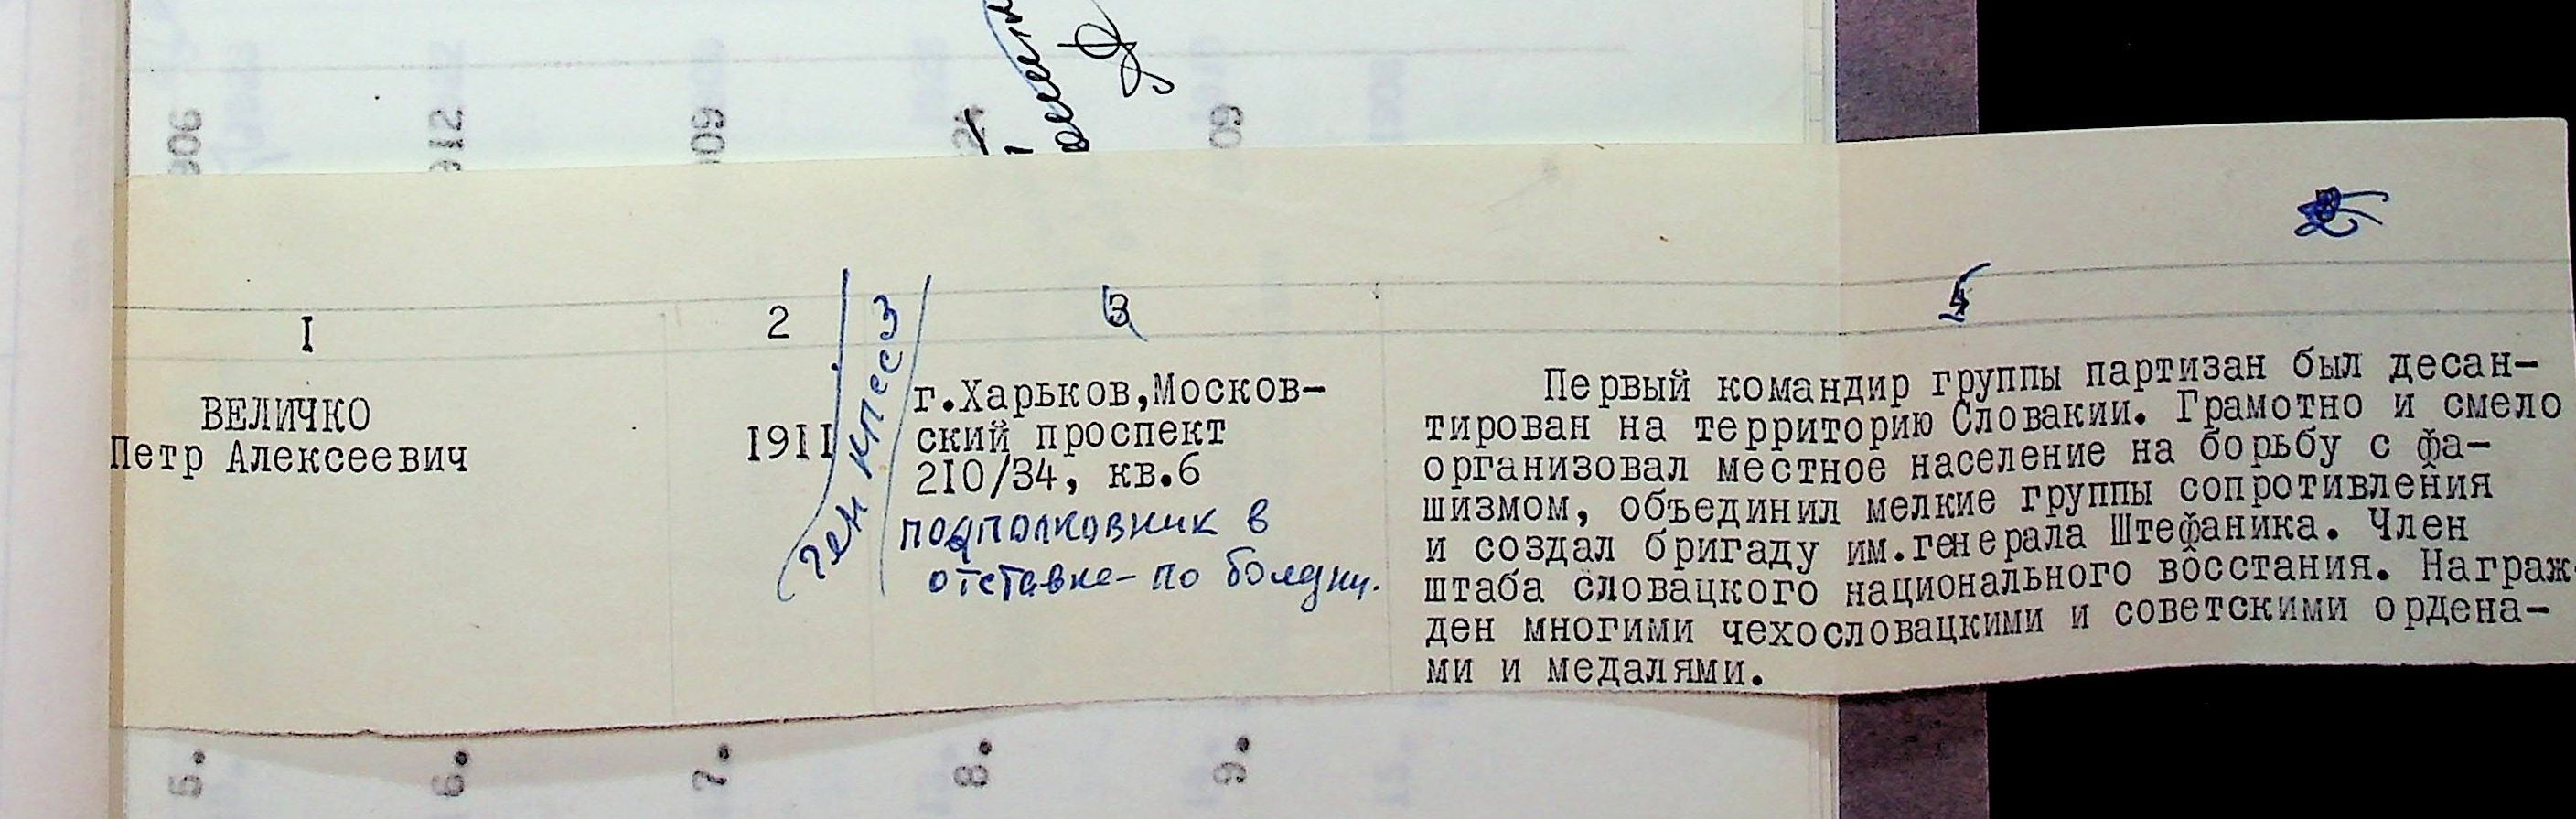 906
912
909
24
09
I
2
3
4
5
ВЕЛИЧКО
Петр Алексеевич
1911
член КПСС
г.Харьков,Москов-
ский проспект
210/34, кв.6
подполковник в
отставке - по болезни.
Первый командир группы партизан был десан-
тирован на территорию Словакии. Грамотно и смело
организовал местное население на борьбу с фа-
шизмом, объединил мелкие группы сопротивления
и создал бригаду им.генерала Штефаника. Член
штаба словацкого национального восстания. Награж-
ден многими чехословацкими и советскими ордена-
ми и медалями.
5.
6.
7.
8.
9.